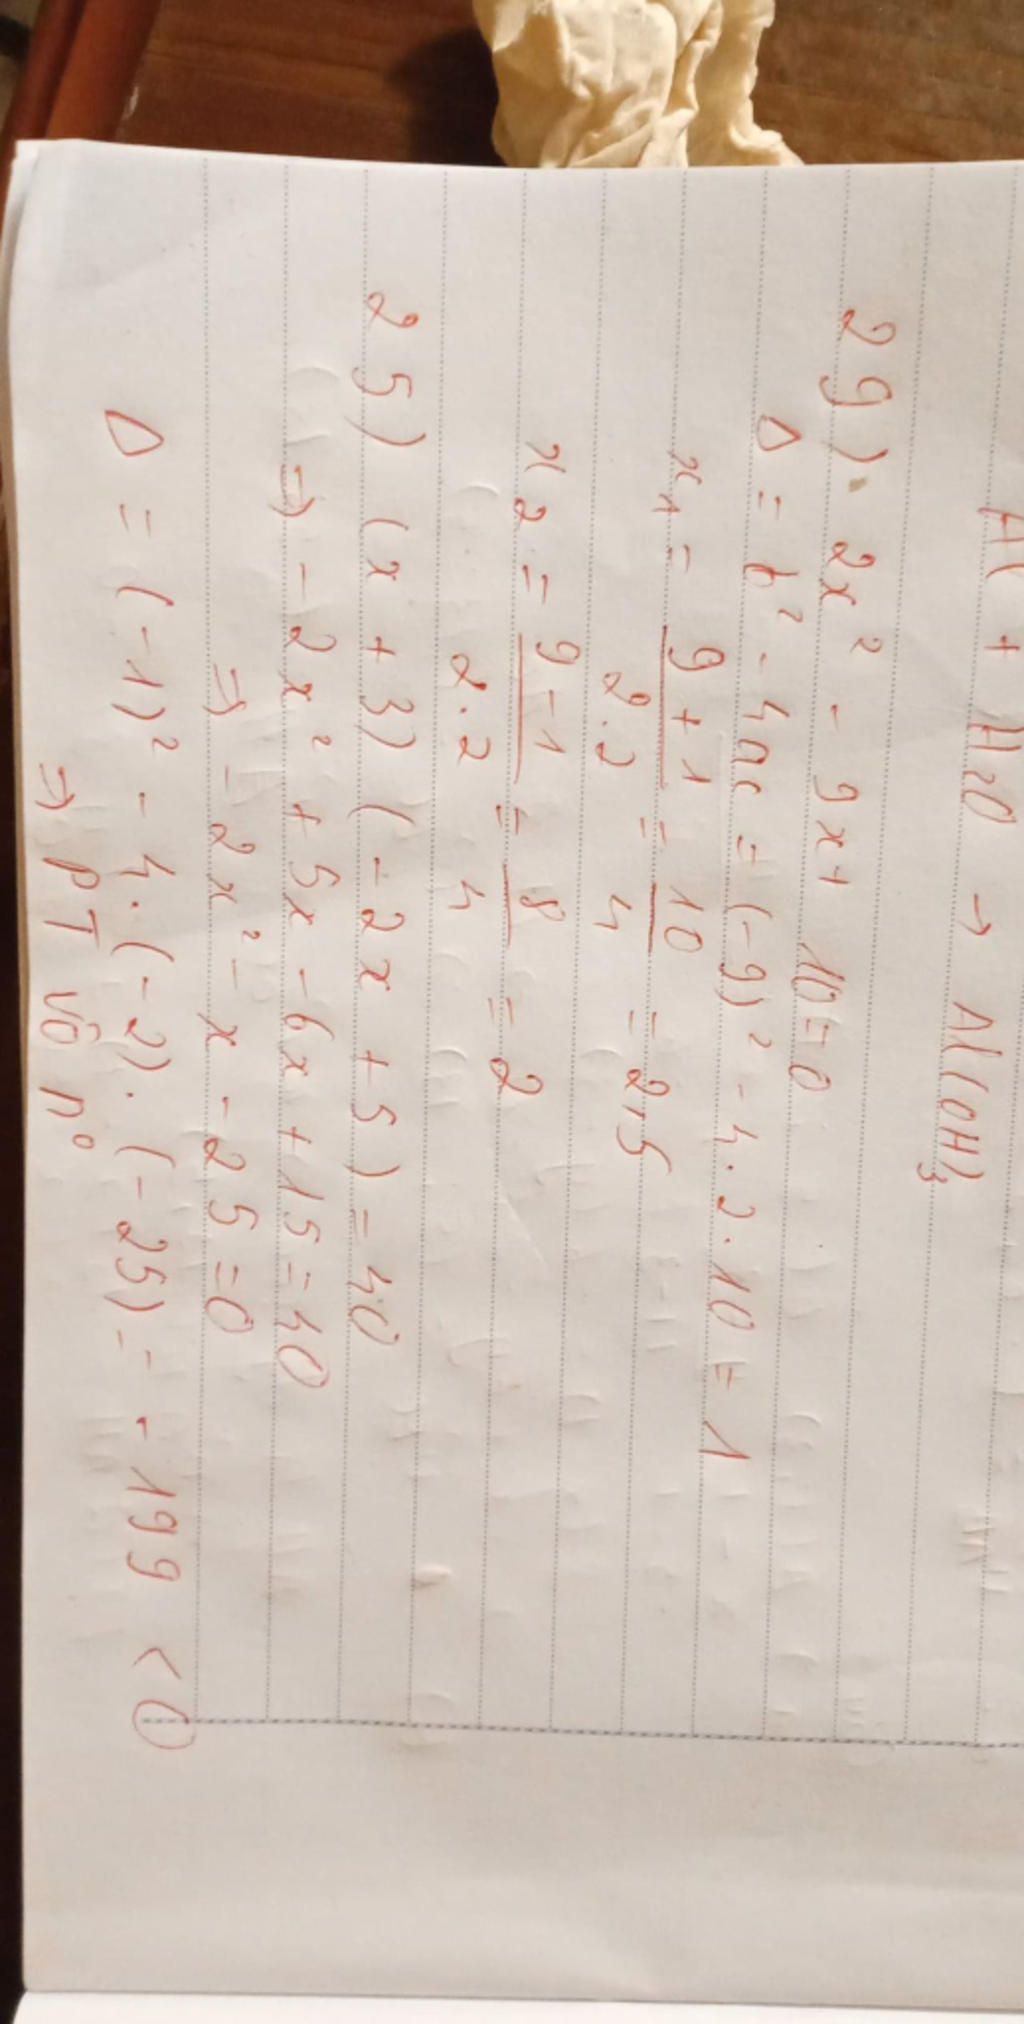 Al + H2O → Al(OH)3
29) 2x² - 9x + 10 = 0
Δ = b² - 4ac = (-9)² - 4.2.10 = 1
x1 = 9+1/2.2 = 10/4 = 2,5
x2 = 9-1/2.2 = 8/4 = 2
25) (x + 3) (-2x + 5) = 40
=> -2x² + 5x - 6x + 15 = 40
=> -2x² - x - 25 = 0
Δ = (-1)² - 4.(-2).(-25) = -199 < 0
=> PT vô n°